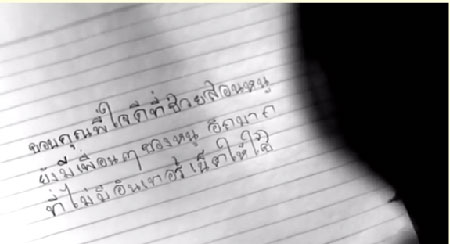 ขอบคุณพี่ใจดีที่ช่วยสอนหนู
ยังมีเพื่อนๆ ของหนู อีกมาก
ที่ไม่มีอินเทอร์เน็ตให้ใช้